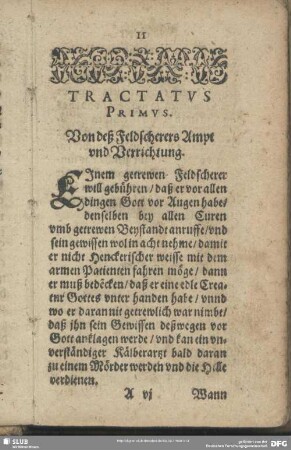 11
TRACTATVS
PRIMVS.
Von deß Feldscherers Ampt
vnd Verrichtung.
EInem getrewen Feldscherer
will gebühren / daß er vor allen
dingen Gott vor Augen habe /
denselben bey allen Curen
vmb getrewen Beystandt anruffe / vnd
sein gewissen wol in acht nehme / damit
er nicht Henckerischer weise mit dem
armen Patienten fahren möge / dann
er muß bedẽcken / daß er eine edle Crea-
tur Gottes vnter handen habe / vnnd
wo er daran nit getrewlich war nimbt /
daß jhn sein Gewissen deßwegen vor
Gott anklagen werde / vnd kan ein vn-
verständiger Kälberartzt bald daran
zu einem Mörder werden vnd die Hille
verdienen.
A vj Wann
SLUB
DFG